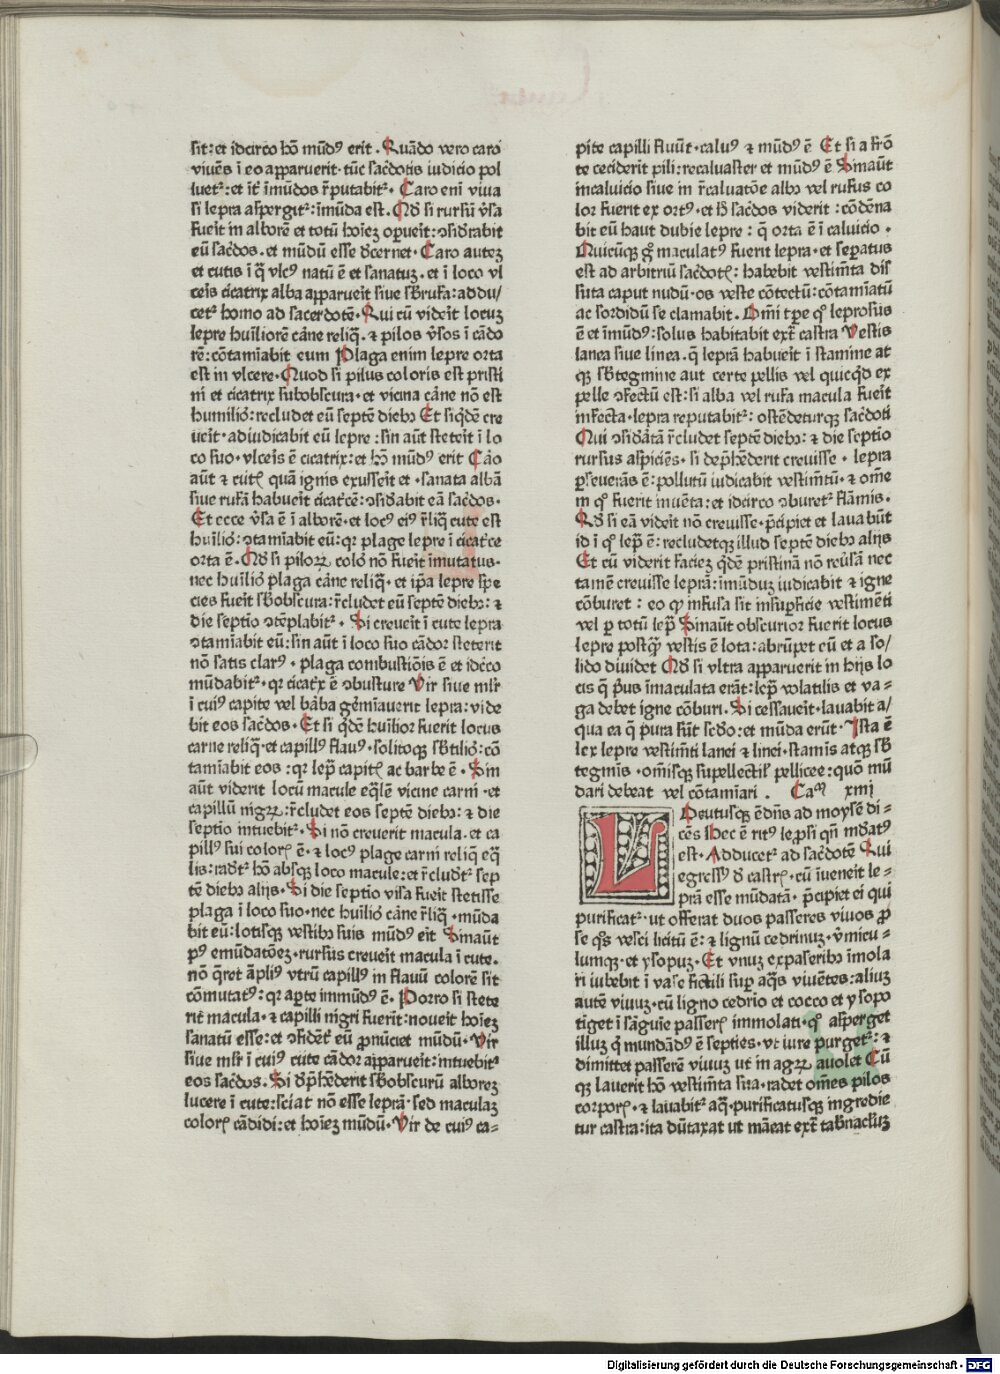 sit: et idcirco hō mūdꝰ erit. Quādo vero caro
viuēs ī eo apparuerit· tūc sac̄dotis iudicio pol
luetᷣ: et īt ̄ īmūdos r̄putabitᷣ. Caro eni viua
si lepra aspergitᷣ: īmūda est. Qď si rursū v̄sa
fueit in alborē et totū hoīeꝫ oꝑueit: ↄsid̄rabit
eū sac̄dos. et mūdū esse d̄cernet· Caro auteꝫ
et cutis ī q̄ vlcꝰ natū ē et sanatuꝫ. et ī loco vl
ceīs cicatrix alba apparueīt siue sb̄rufa: addu/
cetᷣ homo ad sacerdotē. Qui cū videīt locuꝫ
lepre hūiliorē cāne reliq̄. ⁊ pilos v̄sos ī cādo
rē: cōtamīabit eum Plaga enim lepre orta
est in vlcere· Quod si pilus coloris est pristi
ni et cicatrix subobscura· et vicina cāne nō est
humilioꝛ: recludet eū septē diebꝫ Et siq̄dē cre
ueīt· adiudicabit eū lepre: sin aūt steteīt ī lo
co suo· vlceīs ē cicatrix: et hō mūdꝰ erit Cāo
aūt ⁊ cutꝭ quā ignis exusseīt et· sanata albā
siue rufā habueīt cicat̄cē: ↄsid̄abit eā sac̄dos·
Et ecce v̄sa ē ī alborē· et locꝰ eiꝰ r̄liq̄ cute est
hūilioꝛ: ↄtamīabit eū: qꝛ plage lepre ī cicat̄ce
orta ē. Qď si piloꝝ coloꝛ nō fueīt īmutatus·
nec hūilioꝛ plaga cāne reliq̄· et ip̄a lepre sp̄e
cies fueīt sb̄obscura: r̄cludet eū septē diebꝫ: ⁊
die septīo ↄtēplabitᷣ· Si creueīt ī cute lepra
ↄtamīabit eū: sin aūt ī loco suo cādoꝛ steterit
nō satis clarꝰ· plaga combustiōis ē et idc̄co
mūdabitᷣ· qꝛ cicat̄x ē ↄbusture Vir siue mlr̄
ī cuiꝰ capite vel bāba gēmīauerit lepra: vide
bit eos sac̄dos· Et si q̄dē hūilior fuerit locus
carne reliq̄· et capillꝰ flauꝰ· solitoqꝫ sb̄tilioꝛ: cō
tamīabit eos: qꝛ lep̄ capitꝭ ac barbe ē. Sin
aūt viderit locū macule eq̄lē vicine carni· et
capillū nigꝝ: r̄cludet eos septē diebꝫ: ⁊ die
septīo intuebitᷣ· Si nō creuerit macula. et ca
pillꝰ sui colorꝭ ē· ⁊ locꝰ plage carni reliq̄ eq̄
lis: radtᷣ hō absqꝫ loco macule: et r̄cludtᷣ sep
tē diebꝫ alijs· Si die septīo visa fueīt stetisse
plaga ī loco suo· nec hūilioꝛ cāne r̄liq̄· mūda
bit eū: lotisqꝫ vestibꝫ suis mūdꝰ eīt Sīmaūt
pꝰ emūdatōeꝫ· rursūs creueīt macula ī cute.
nō q̄ret āpliꝰ vtrū capillꝰ in flauū colorē sit
cōmutatꝰ: qꝛ aꝑte immūdꝰ ē· Porro si stete
rīt macula· ⁊ capilli nigri fuerīt: noueīt hoīeꝫ
sanatū esse: et ↄfidētᷣ eū ꝓnūciet mūdū· Vir
siue mlr̄ ī cuiꝰ cute cādoꝛ apparueīt: intuebitᷣ
eos sac̄dos. Si dep̄hēderit sb̄obscurū alboreꝫ
lucere ī cute: sciat nō esse leprā· sed maculaꝫ
colorꝭ cādidi: et hoīeꝫ mūdū· Vir de cuiꝰ ca=
pite capilli fluūt· caluꝰ ⁊ mūdꝰ ē Et si a frō
te ceciderit pili: recaluaster et mūdꝰ ē Sīmaūt
in caluicio siue in r̄caluatōe albꝫ vel rufus co
lor fuerit ex ortꝰ· et h̄ sac̄dos viderit: cōdēna
bit eū haut dubie lepre: q̄ orta ē ī caluicio·
Quicūqꝫ g̊ maculatꝰ fuerit lepra· et seꝑatus
est ad arbitriū sac̄dotꝭ: habebit vestim̄ta dis
suta caput nudū· os veste cōtectū: cōtamīatū
ac sordidū se clamabit. Om̄i tꝑe qͦ leprosus
ē et īmūdꝰ: solus habitabit ext̄ castra Vestis
lanea siue linea· q̄ leprā habueīt ī stamine at
qꝫ sb̄tegmine aut certe pellis vel quicq̄d ex
pelle ↄfectū est: si alba vel rufa macula fueīt
infecta· lepra reputabitᷣ: ostēdeturqꝫ sac̄doti
Qui ↄsid̄atā r̄cludet septē diebꝫ: ⁊ die septīo
rursus aspiciēs· si dep̄hēderit creuisse· lepra
ꝑseuerās ē: pollutū iudicabit vestimtū· ⁊ om̄e
in qͦ fuerit inuēta: et idcirco ↄburetᷣ flāmis.
Qď si eā videīt nō creuisse· p̄cipiet et lauabūt
id ī qͦ lep̄ ē: recludetqꝫ illud septē diebꝫ alijs
Et cū viderit facieꝫ q̄dē pristinā nō reūsā nec
tamē creuisse leprā: īmūduꝫ iudicabit ⁊ igne
cōburet: eo qͫ infusa sit insuꝑficie vestimēti
vel ꝑ totū lep̄ Sinaūt obscurior fuerit locus
lepre postq̄ vestis ē lota: abrūpet eū et a so/
lido diuidet Qď si vltra apparuerit in hijs lo
cis q̄ pͥus īmaculata erāt: lep̄ volatilis et va=
ga debet igne cōburi. Si cessaueīt· lauabit a/
qua ea q̄ pura sūt scd̄o: et mūda erūt· Ista ē
lex lepre vestimti lanei ⁊ linei· stamīs atqꝫ sb̄
tegmīs· om̄isqꝫ supellectilꝭ pellicee: quō mū
dari debeat vel cōtamīari. Caᵐ xiiij
Locutusqꝫ ē dn̄s ad moysē di=
cēs Hec ē ritꝰ lep̄si qn̄ mūdatꝰ
est· Adducetᷣ ad sac̄dotē Qui
egressꝰ d̄ castrꝭ· cū īueneīt le=
prā esse mūdatā· p̄cipiet ei qui
purificatᷣ· ut offerat duos passeres viuos ꝓ
se qͦs vesci licitū ē: ⁊ lignū cedrinuꝫ· v̄micu=
lumqꝫ· et ysopuꝫ· Et vnuꝫ ex passeribꝫ īmola
ri iubebit ī vase fictili suꝑ aq̄s viuētes: aliuꝫ
autē viuuꝫ· cū ligno cedrio et cocco et ysopo
tīget ī sāguīe passerꝭ immolati· qͦ asꝑget
illuꝫ q̄ mundādꝰ ē septies· vt iure purgetᷣ: ⁊
dimittet passerē viuuꝫ ut in agꝝ auolet Cū
qꝫ lauerit hō vestimta sua· radet om̄es pilos
corporꝭ· ⁊ lauabitᷣ aq̄· purificatusqꝫ ingredie
tur castra: ita dūtaxat ut māeat ext̄ tab̄nacl̄uꝫ
Digitalisierung gefördert durch die Deutsche Forschungsgemeinschaft - DFG